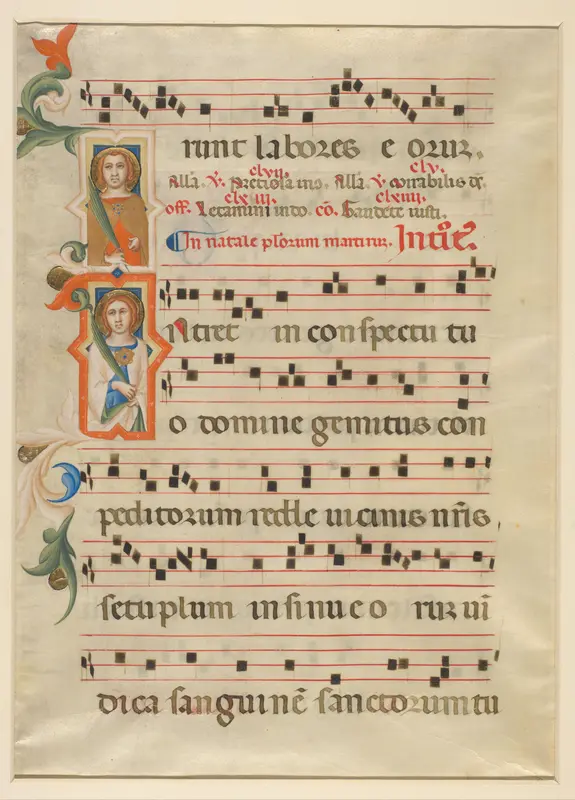 runt labores e orum.
clvii. clv.
Alla. v. Preciosa ī ɔ. Alla. v. mirabilis dr̄.
clx iii. clxiiii.
off. Letamini in dño. cō. Gaudete iusti.
In natale plorum martirum. Introit.
Ntret in conspectu tu
o domine gemitus con
peditorum redde uicinis nr̄is
septuplum in sinu eo rum ui
dica sanguinē sanctorum tu